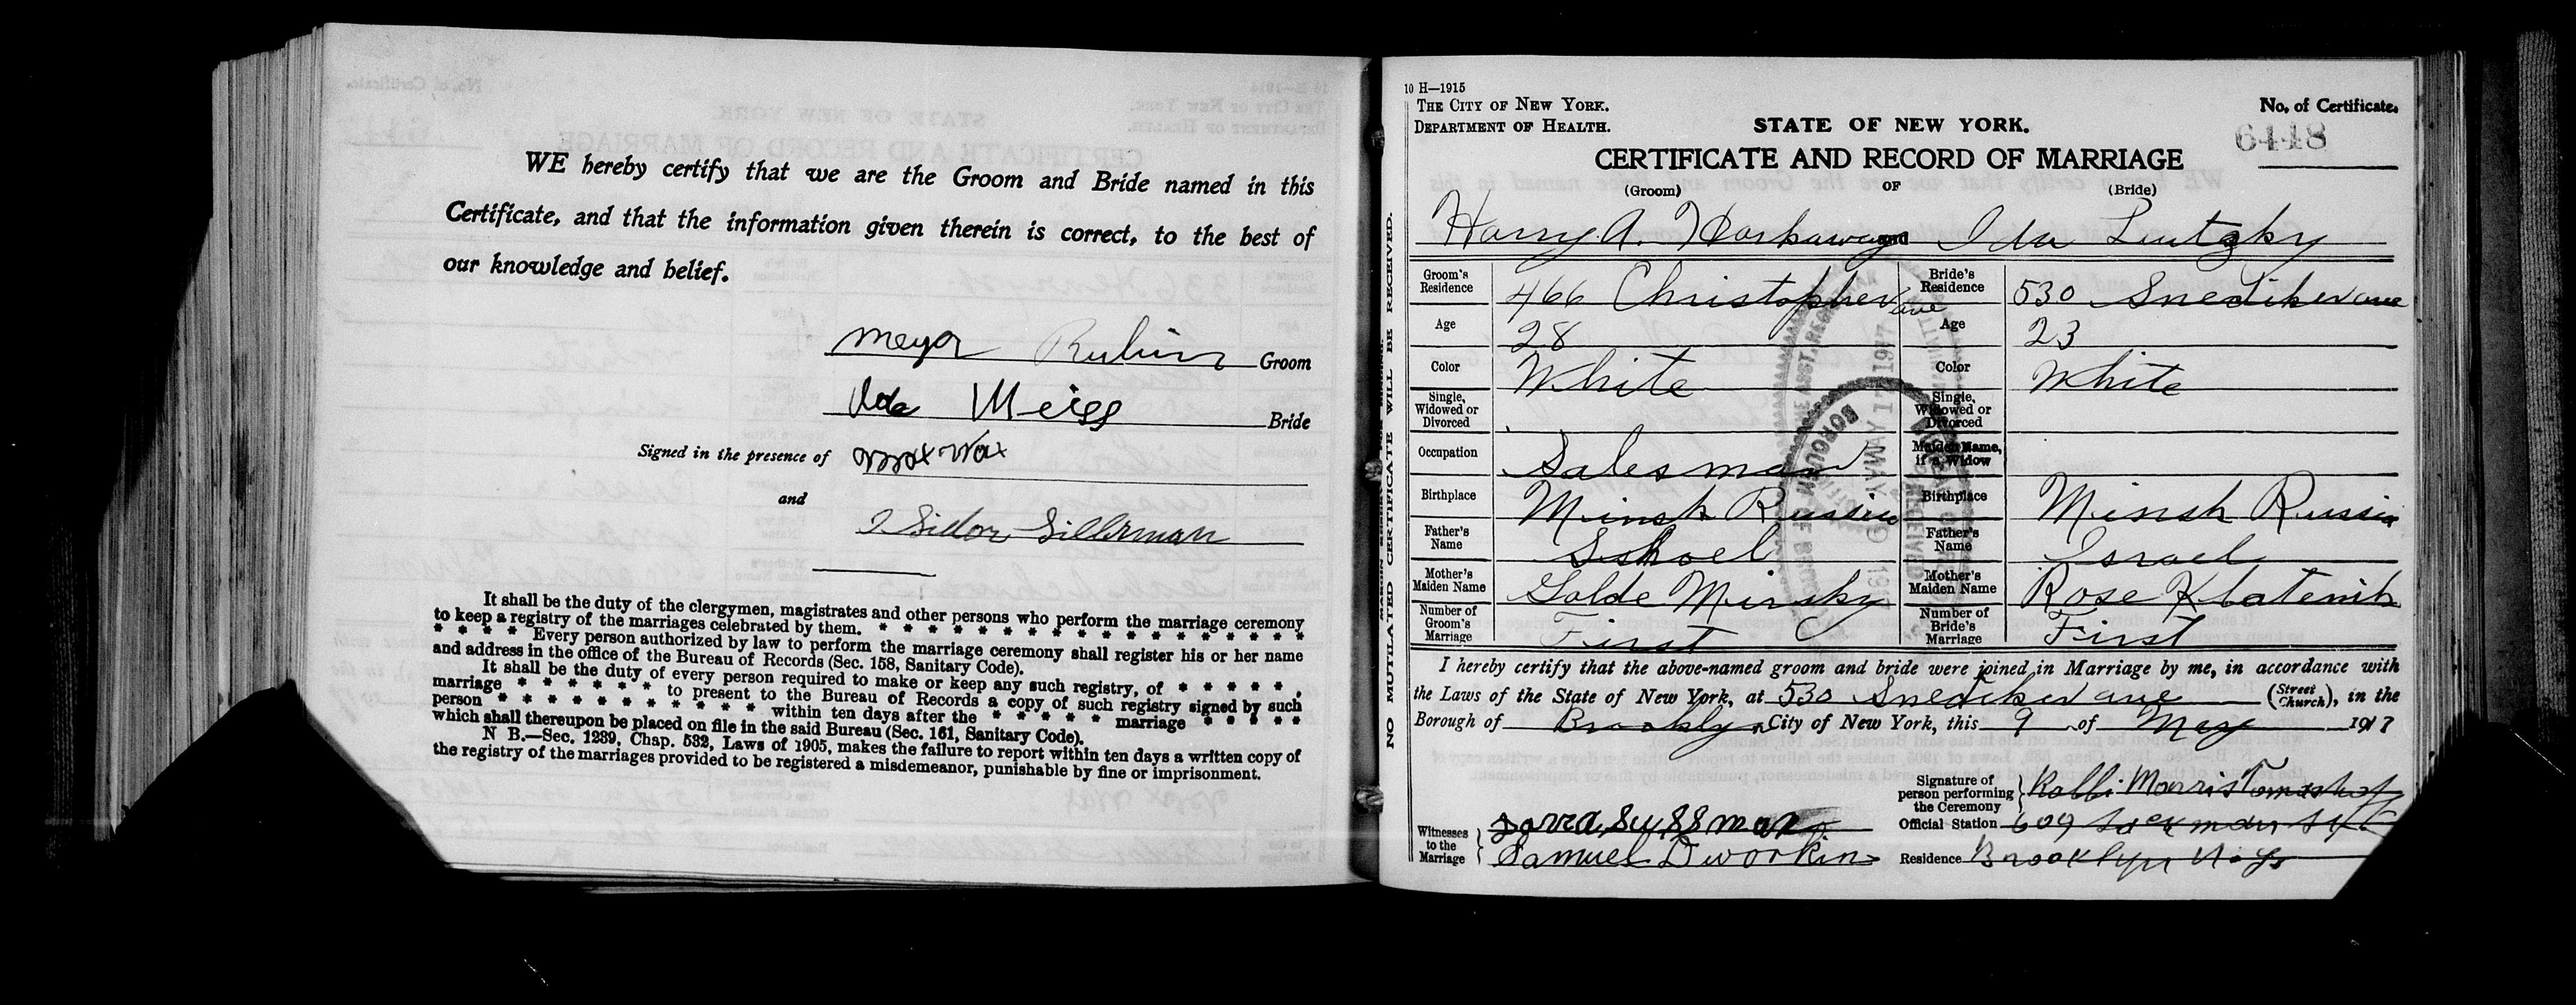 WE hereby certify that we are the Groom and Bride named in this
Certificate, and that the information given therein is correct, to the best of
our knowledge and belief.
Meyer Rubin Groom
Ida Weiss Bride
Signed in the presence of Max Wax
and
Isidor Sillerman
It shall be the duty of the clergymen, magistrates and other persons who perform the marriage ceremony
to keep a registry of the marriages celebrated by them. * * * * * * * * * * * * * * * *
* * * * Every person authorized by law to perform the marriage ceremony shall register his or her name
and address in the office of the Bureau of Records (Sec. 158, Sanitary Code).
It shall be the duty of every person required to make or keep any such registry, of * * * * * ,
marriage * * * * * * to present to the Bureau of Records a copy of such registry signed by such
person * * * * * * * * * * * within ten days after the * * * * * marriage * * * * *
which shall thereupon be placed on file in the said Bureau (Sec. 161, Sanitary Code).
N B.—Sec. 1239, Chap. 532, Laws of 1905, makes the failure to report within ten days a written copy of
the registry of the marriages provided to be registered a misdemeanor, punishable by fine or imprisonment.
10 H—1915
THE CITY OF NEW YORK.
DEPARTMENT OF HEALTH.
No. of Certificate.
6448
STATE OF NEW YORK.
CERTIFICATE AND RECORD OF MARRIAGE
(Groom) OF (Bride)
Harry A. Harkavy and Ida Lutzky
Groom's Residence 466 Christopher ave Bride's Residence 530 Snediker ave
Age 28 Age 23
Color White Color White
Single, Widowed or Divorced Single, Widowed or Divorced
Occupation Salesman Maiden Name, if a Widow
Birthplace Minsk Russia Birthplace Minsk Russia
Father's Name Father's Name Israel
Mother's Maiden Name Golde Minsky Mother's Maiden Name Rose
Number of Groom's Marriage First Number of Bride's Marriage First
I hereby certify that the above-named groom and bride were joined in Marriage by me, in accordance with
the Laws of the State of New York, at 530 Snediker ave (Street Church), in the
Borough of Brooklyn City of New York, this 9 of May 1917
Signature of person performing the Ceremony Rabbi Morris
Witnesses to the Marriage Sarra Sussman Official Station 609 Sackman St
Samuel Dworkin Residence Brooklyn N.Y.
NO MUTILATED CERTIFICATE WILL BE RECEIVED.
MAY 17 1917